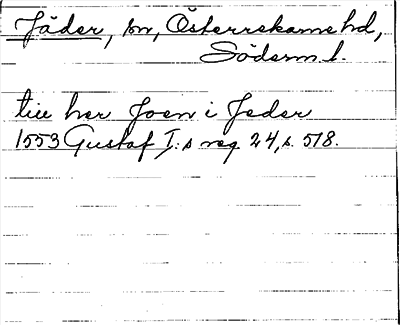 Jäder, sn, Österrekarne hd,
Söderm. l.
till her Joen i Jeder
1553 Gustaf I:s reg 24, s. 518.